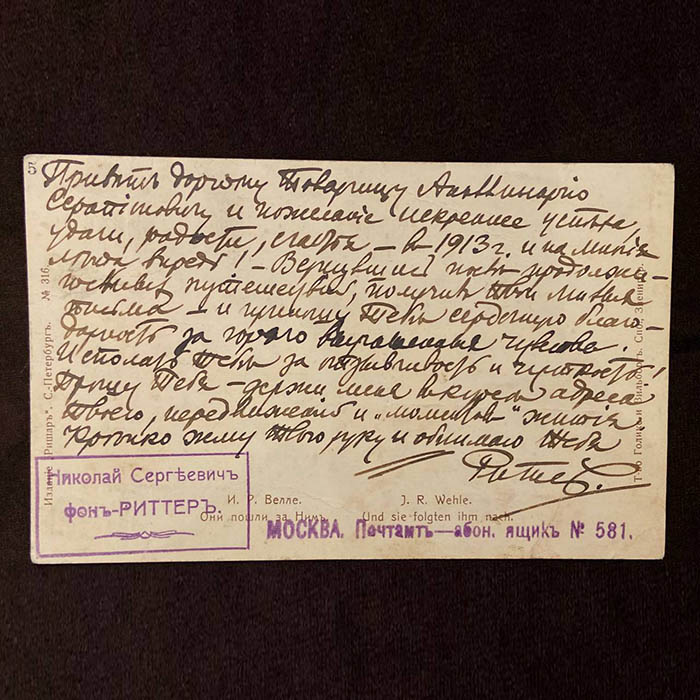 5
Привѣтъ дорогому Товарищу Аполлинарію
и пожеланіе искреннее успѣха,
удачи, радости, счастья – въ 1913 г. и на многія
лѣта впредь! – Вернувшись изъ продолжи-
путешествія, получилъ Твои милыя
письма – и приношу Тебѣ сердечную благо-
дарность за горячо выраженныя чувства.
Исполать Тебѣ за отзывчивость и чуткость!
Прошу Тебя – держи меня въ курсѣ адреса
Твоего, передвиженій и „моментовъ" житія
Крѣпко жму Твою руку и обнимаю Тебя
Риттеръ.
Николай Сергѣевичъ
фонъ-РИТТЕРЪ.
И. Р. Велле.
Они пошли за Нимъ.
J. R. Wehle.
Und sie folgten ihm nach.
МОСКВА. Почтамтъ—абон. ящикъ № 581.
Изданіе „Ришаръ", С.-Петербургъ. № 316
Т-во Голике и Вильборгъ. Спб. Звениг.